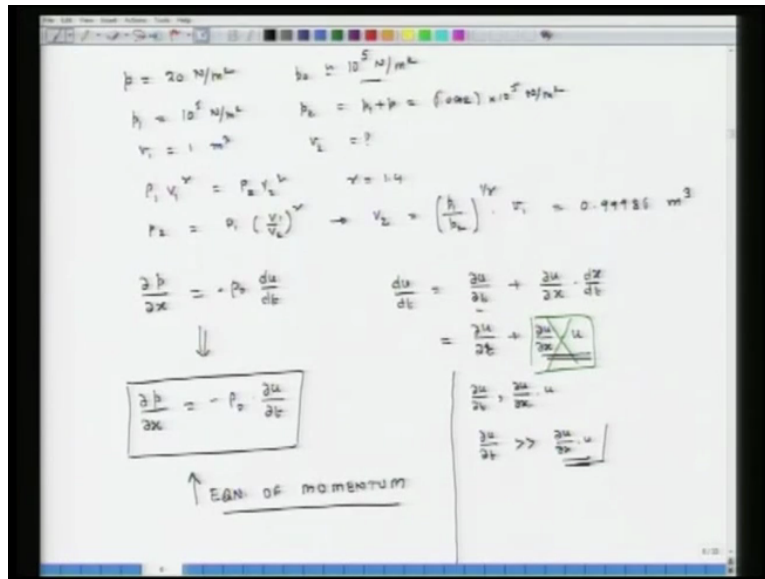 p = 20 N/m²
p₀ ≈ 10⁵ N/m²
p₁ = 10⁵ N/m²
p₂ = p₁ + p = (1.0002) × 10⁵ N/m²
v₁ = 1 m³
v₂ = ?
p₁ v₁^γ = p₂ v₂^γ γ = 1.4
p₂ = p₁ (v₁/v₂)^γ → v₂ = (p₁/p₂)^(1/γ) · v₁ = 0.99986 m³
∂p/∂x = - ρ₀ du/dt
du/dt = ∂u/∂t + ∂u/∂x · dx/dt
= ∂u/∂t + ∂u/∂x · u
⇓
∂p/∂x = - ρ₀ · ∂u/∂t
∂u/∂t , ∂u/∂x · u
∂u/∂t >> ∂u/∂x · u
↑ EQN OF MOMENTUM